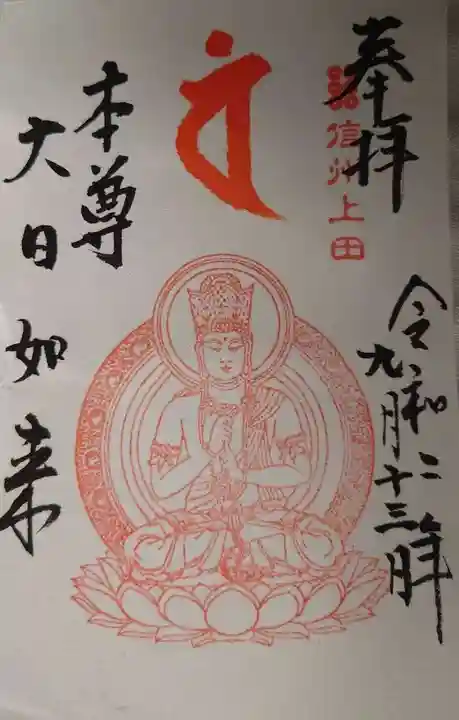 奉拝
信州上田
令和二年
九月十三日
𑖪𑖽
本尊
大日如来